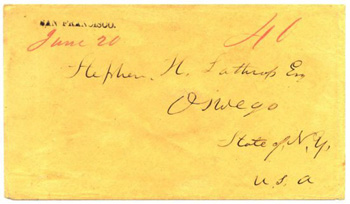 SAN FRANCISCO.
June 20 40
Stephen H. Lathrop Esq
Oswego
State of N.Y.
U.S.A